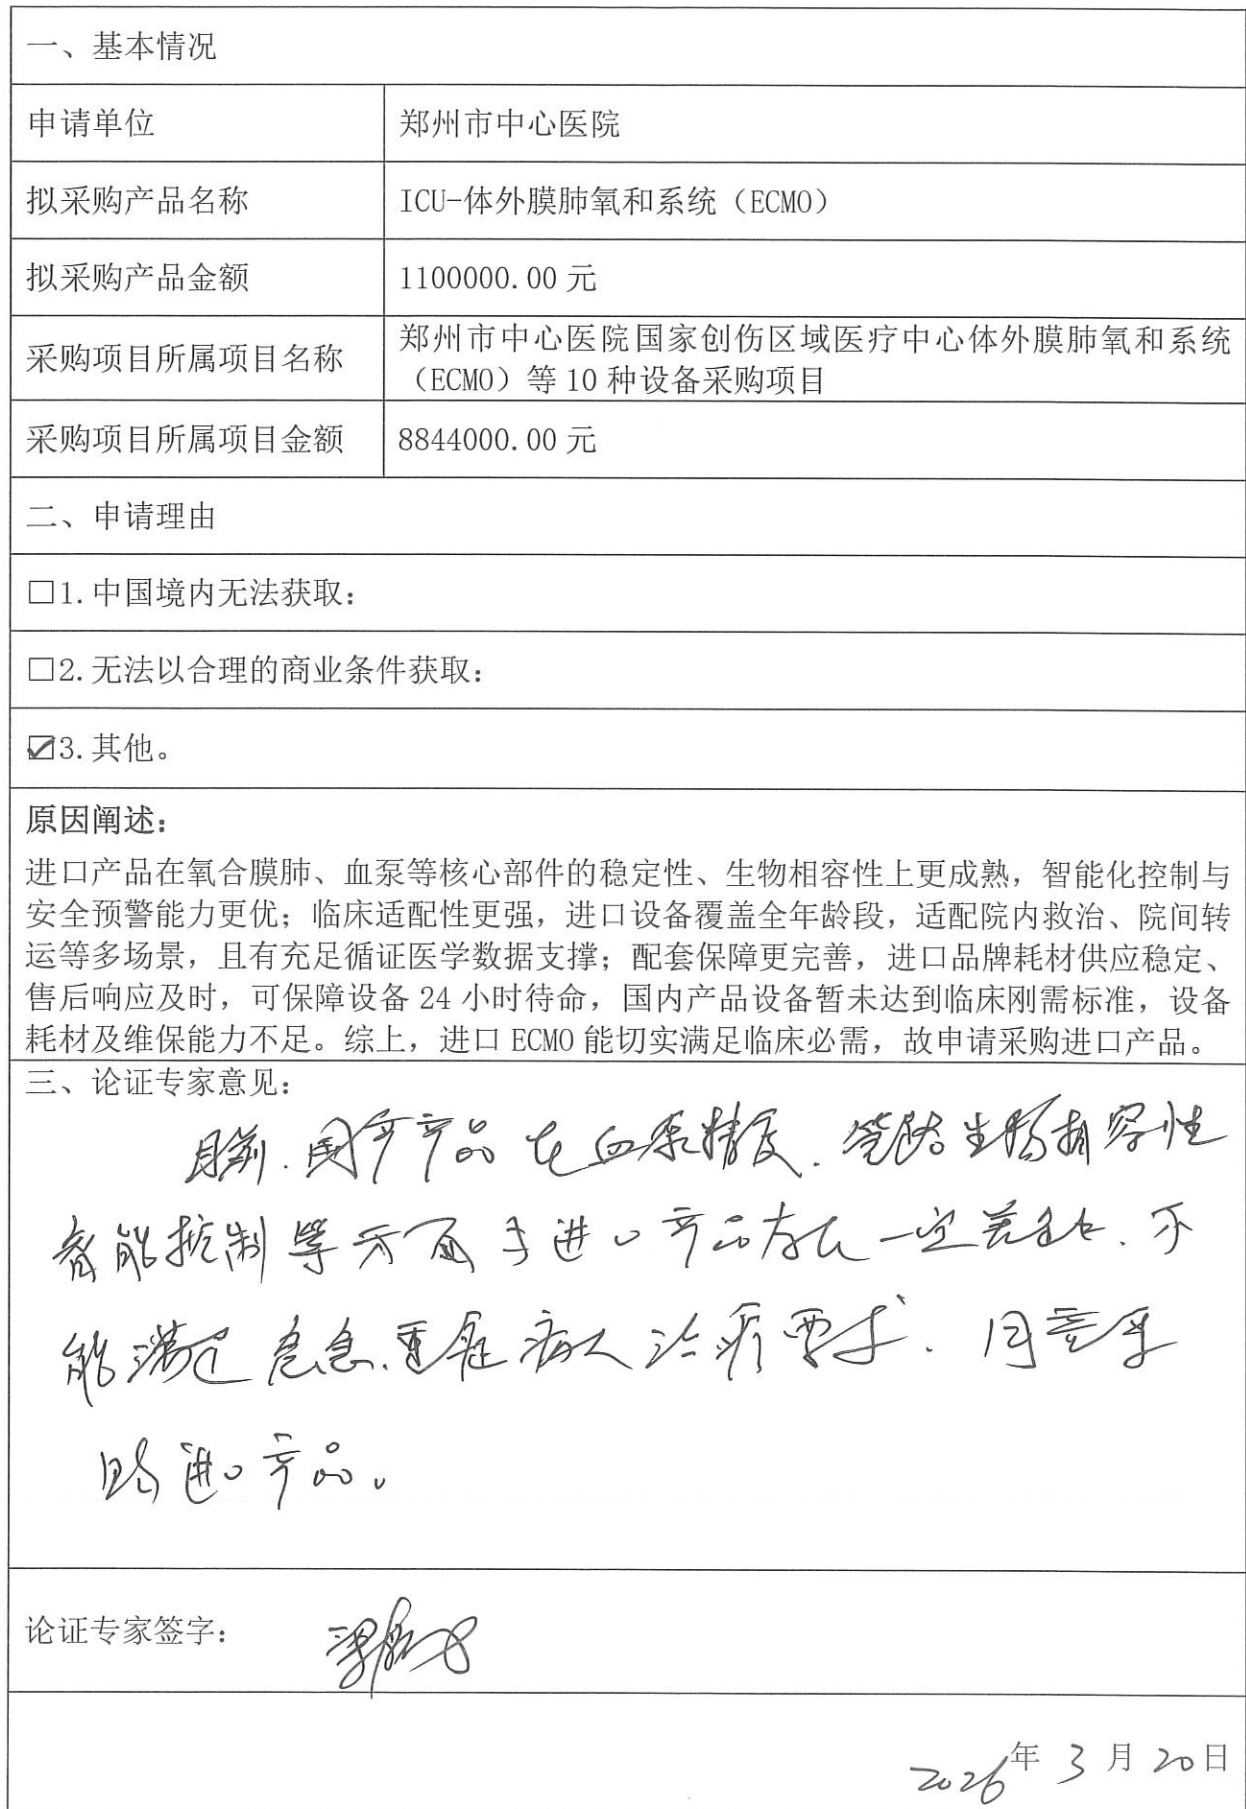 一、基本情况
申请单位 郑州市中心医院
拟采购产品名称 ICU-体外膜肺氧和系统（ECMO）
拟采购产品金额 1100000.00 元
采购项目所属项目名称 郑州市中心医院国家创伤区域医疗中心体外膜肺氧和系统
（ECMO）等 10 种设备采购项目
采购项目所属项目金额 8844000.00 元
二、申请理由
□1.中国境内无法获取：
□2.无法以合理的商业条件获取：
☑3.其他。
原因阐述：
进口产品在氧合膜肺、血泵等核心部件的稳定性、生物相容性上更成熟，智能化控制与
安全预警能力更优；临床适配性更强，进口设备覆盖全年龄段，适配院内救治、院间转
运等多场景，且有充足循证医学数据支撑；配套保障更完善，进口品牌耗材供应稳定、
售后响应及时，可保障设备 24 小时待命，国内产品设备暂未达到临床刚需标准，设备
耗材及维保能力不足。综上，进口 ECMO 能切实满足临床必需，故申请采购进口产品。
三、论证专家意见：
目前.国产产品在血泵精度.管路生物相容性
智能控制等方面与进口产品存在一定差距.不
能满足危急.重症病人治疗要求.同意采
购进口产品。
论证专家签字：
2026年3月20日